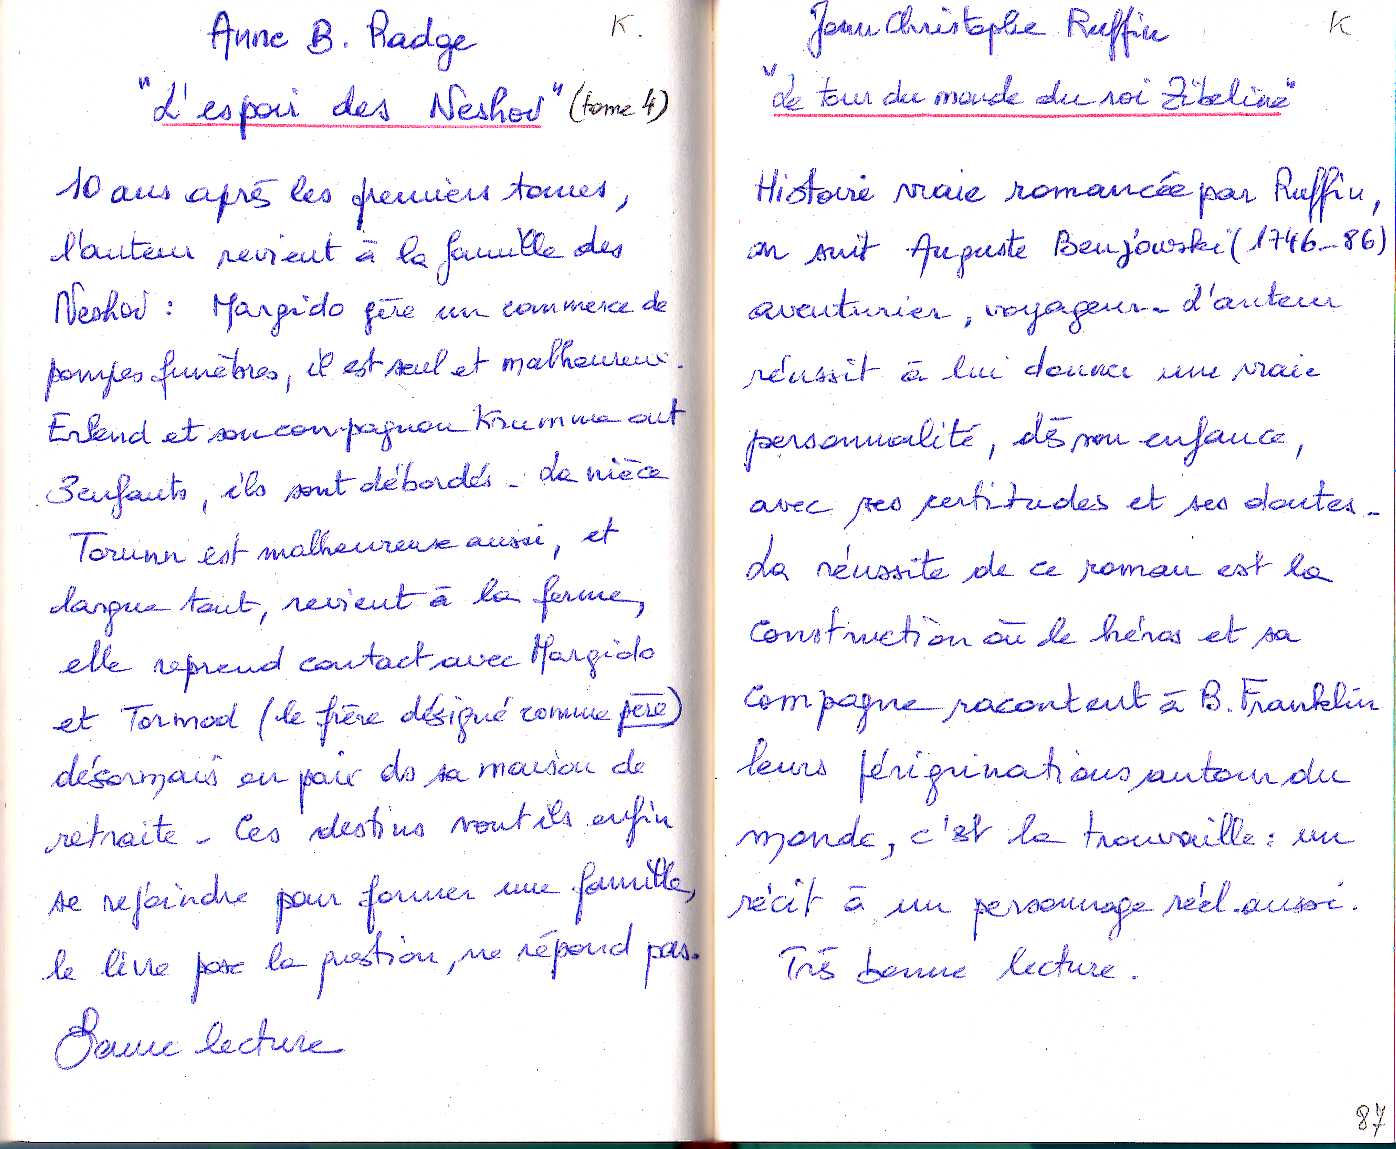 Anne B. Radge K.
"L'espoir des Neshov" (tome 4)
10 ans après les premiers tomes,
l'auteur revient à la famille des
Neshov : Margido gère un commerce de
pompes funèbres, il est seul et malheureux.
Erlend et son compagnon Krumme ont
3 enfants, ils sont débordés. La nièce
Torunn est malheureuse aussi, et
largue tout, revient à la ferme,
elle reprend contact avec Margido
et Tormod (le frère désigné comme père)
désormais en paix ds sa maison de
retraite. Ces destins vont ils enfin
se rejoindre pour former une famille,
le livre pose la question, ne répond pas.
Bonne lecture
Jean Christophe Ruffin K
"Le tour du monde du roi Zibeline"
Histoire vraie romancée par Ruffin,
on suit Auguste Benjowski (1746-86)
aventurier, voyageur. L'auteur
réussit à lui donner une vraie
personnalité, dès son enfance,
avec ses certitudes et ses doutes.
La réussite de ce roman est la
construction où le héros et sa
compagne racontent à B. Franklin
leurs pérégrinations autour du
monde, c'est la trouvaille : un
récit à un personnage réel aussi.
Très bonne lecture.
87